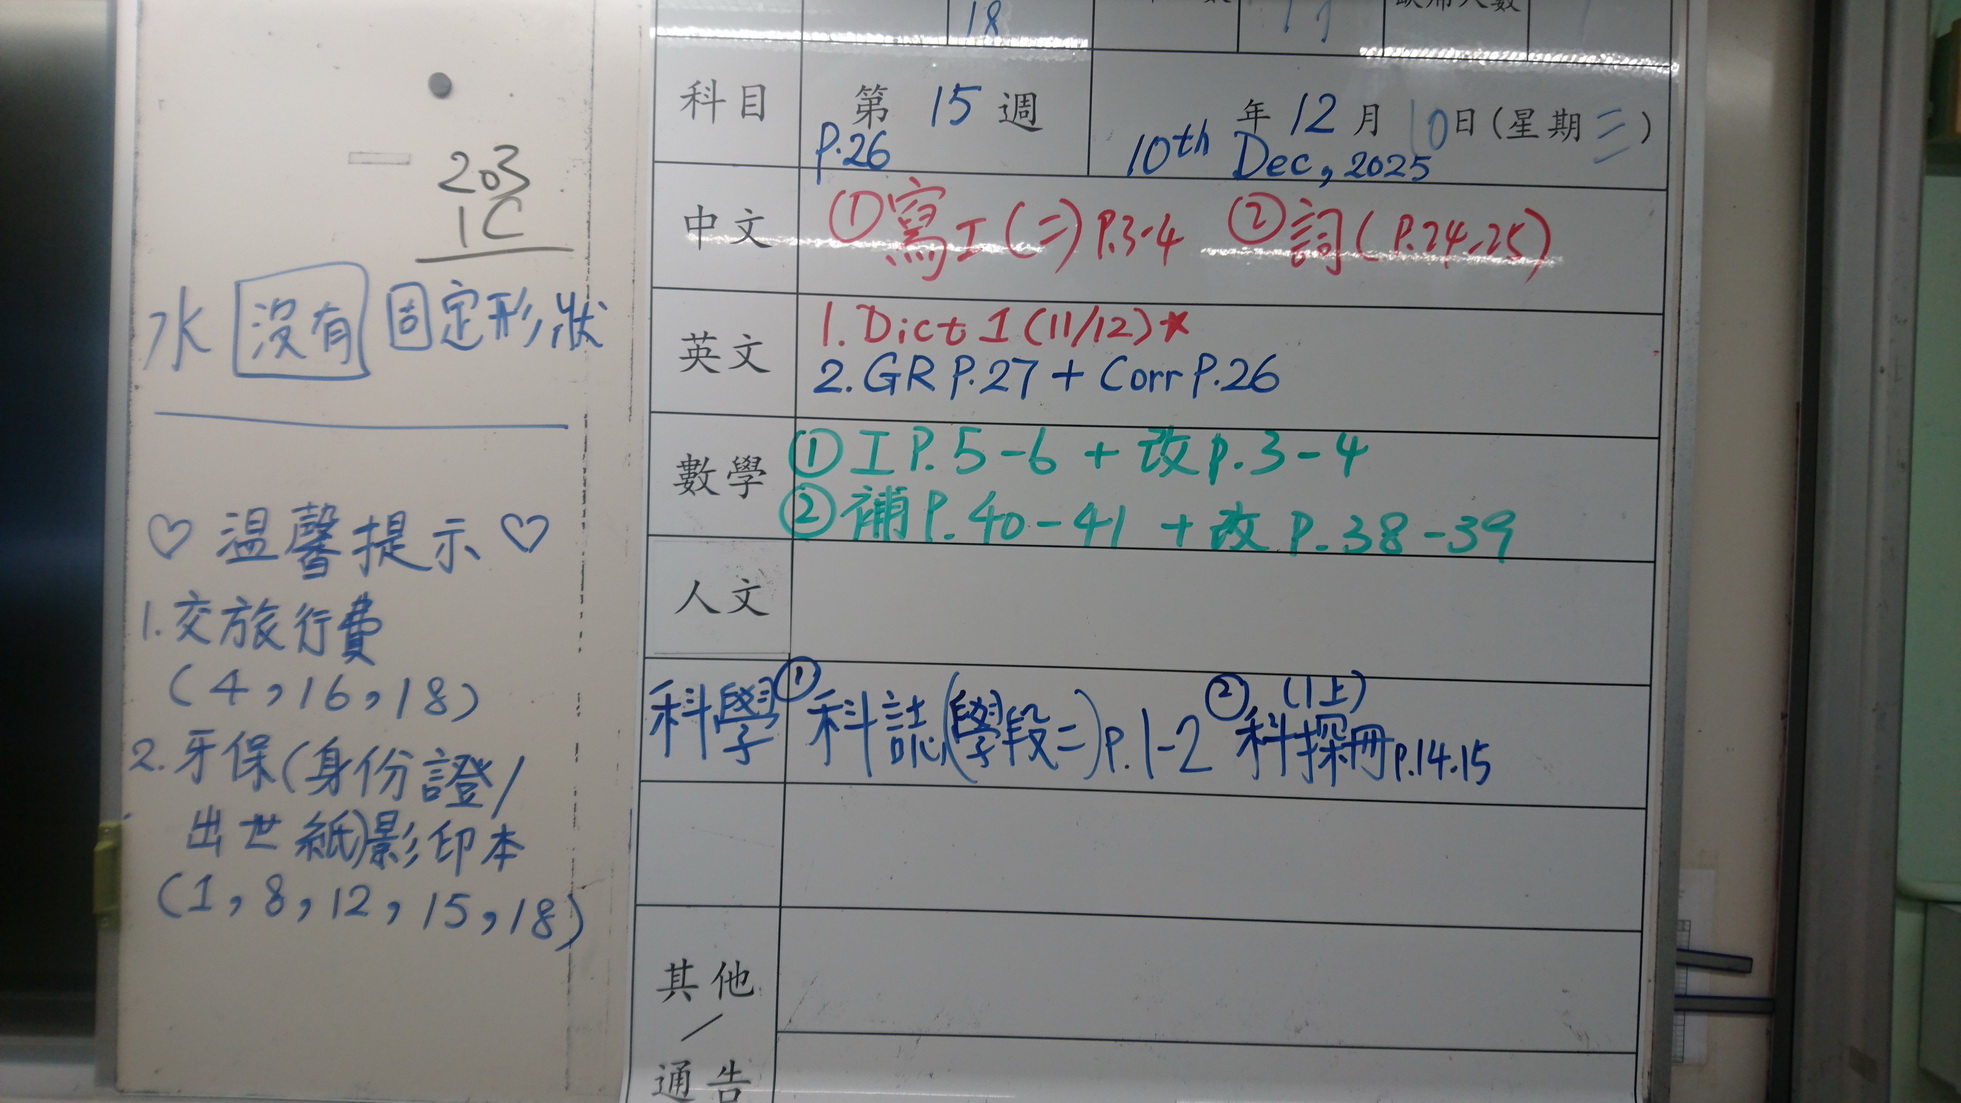 203
1C
水 沒有 固定形狀
♡ 溫馨提示 ♡
1. 交旅行費
(4, 16, 18)
2. 牙保(身份證/
出世紙)影印本
(1, 8, 12, 15, 18)
18
科目 第 15 週 年 12 月 10 日 (星期三)
P.26 10th Dec, 2025
中文 ① 寫工(二) P.3-4 ② 詞 (P.24-25)
英文 1. Dict 1 (11/12)*
2. GR P.27 + Corr P.26
數學 ① 工 P.5-6 + 改 P.3-4
② 補 P.40-41 + 改 P.38-39
人文
科學 ① 科誌(學段二) P.1-2 ② (1上)
科探冊 P.14.15
其他
/
通告